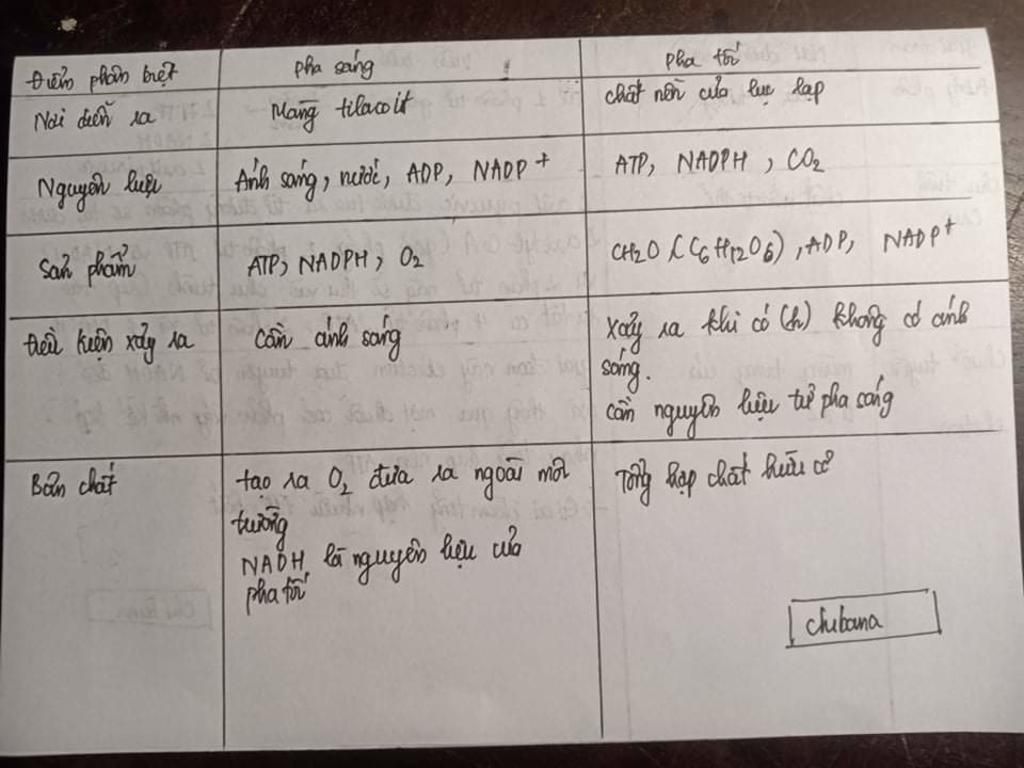 Điểm phân biệt
pha sáng
pha tối
Nơi diễn ra
Màng tilacoit
chất nền của lục lạp
Nguyên liệu
Ánh sáng, nước, ADP, NADP+
ATP, NADPH, CO2
Sản phẩm
ATP, NADPH, O2
CH2O (C6H12O6), ADP, NADP+
Điều kiện xảy ra
Cần ánh sáng
Xảy ra khi có (h) không có ánh
sáng.
cần nguyên liệu từ pha sáng
Bản chất
tạo ra O2 đưa ra ngoài môi
trường
NADH là nguyên liệu của
pha tối
Tổng hợp chất hữu cơ
chibana